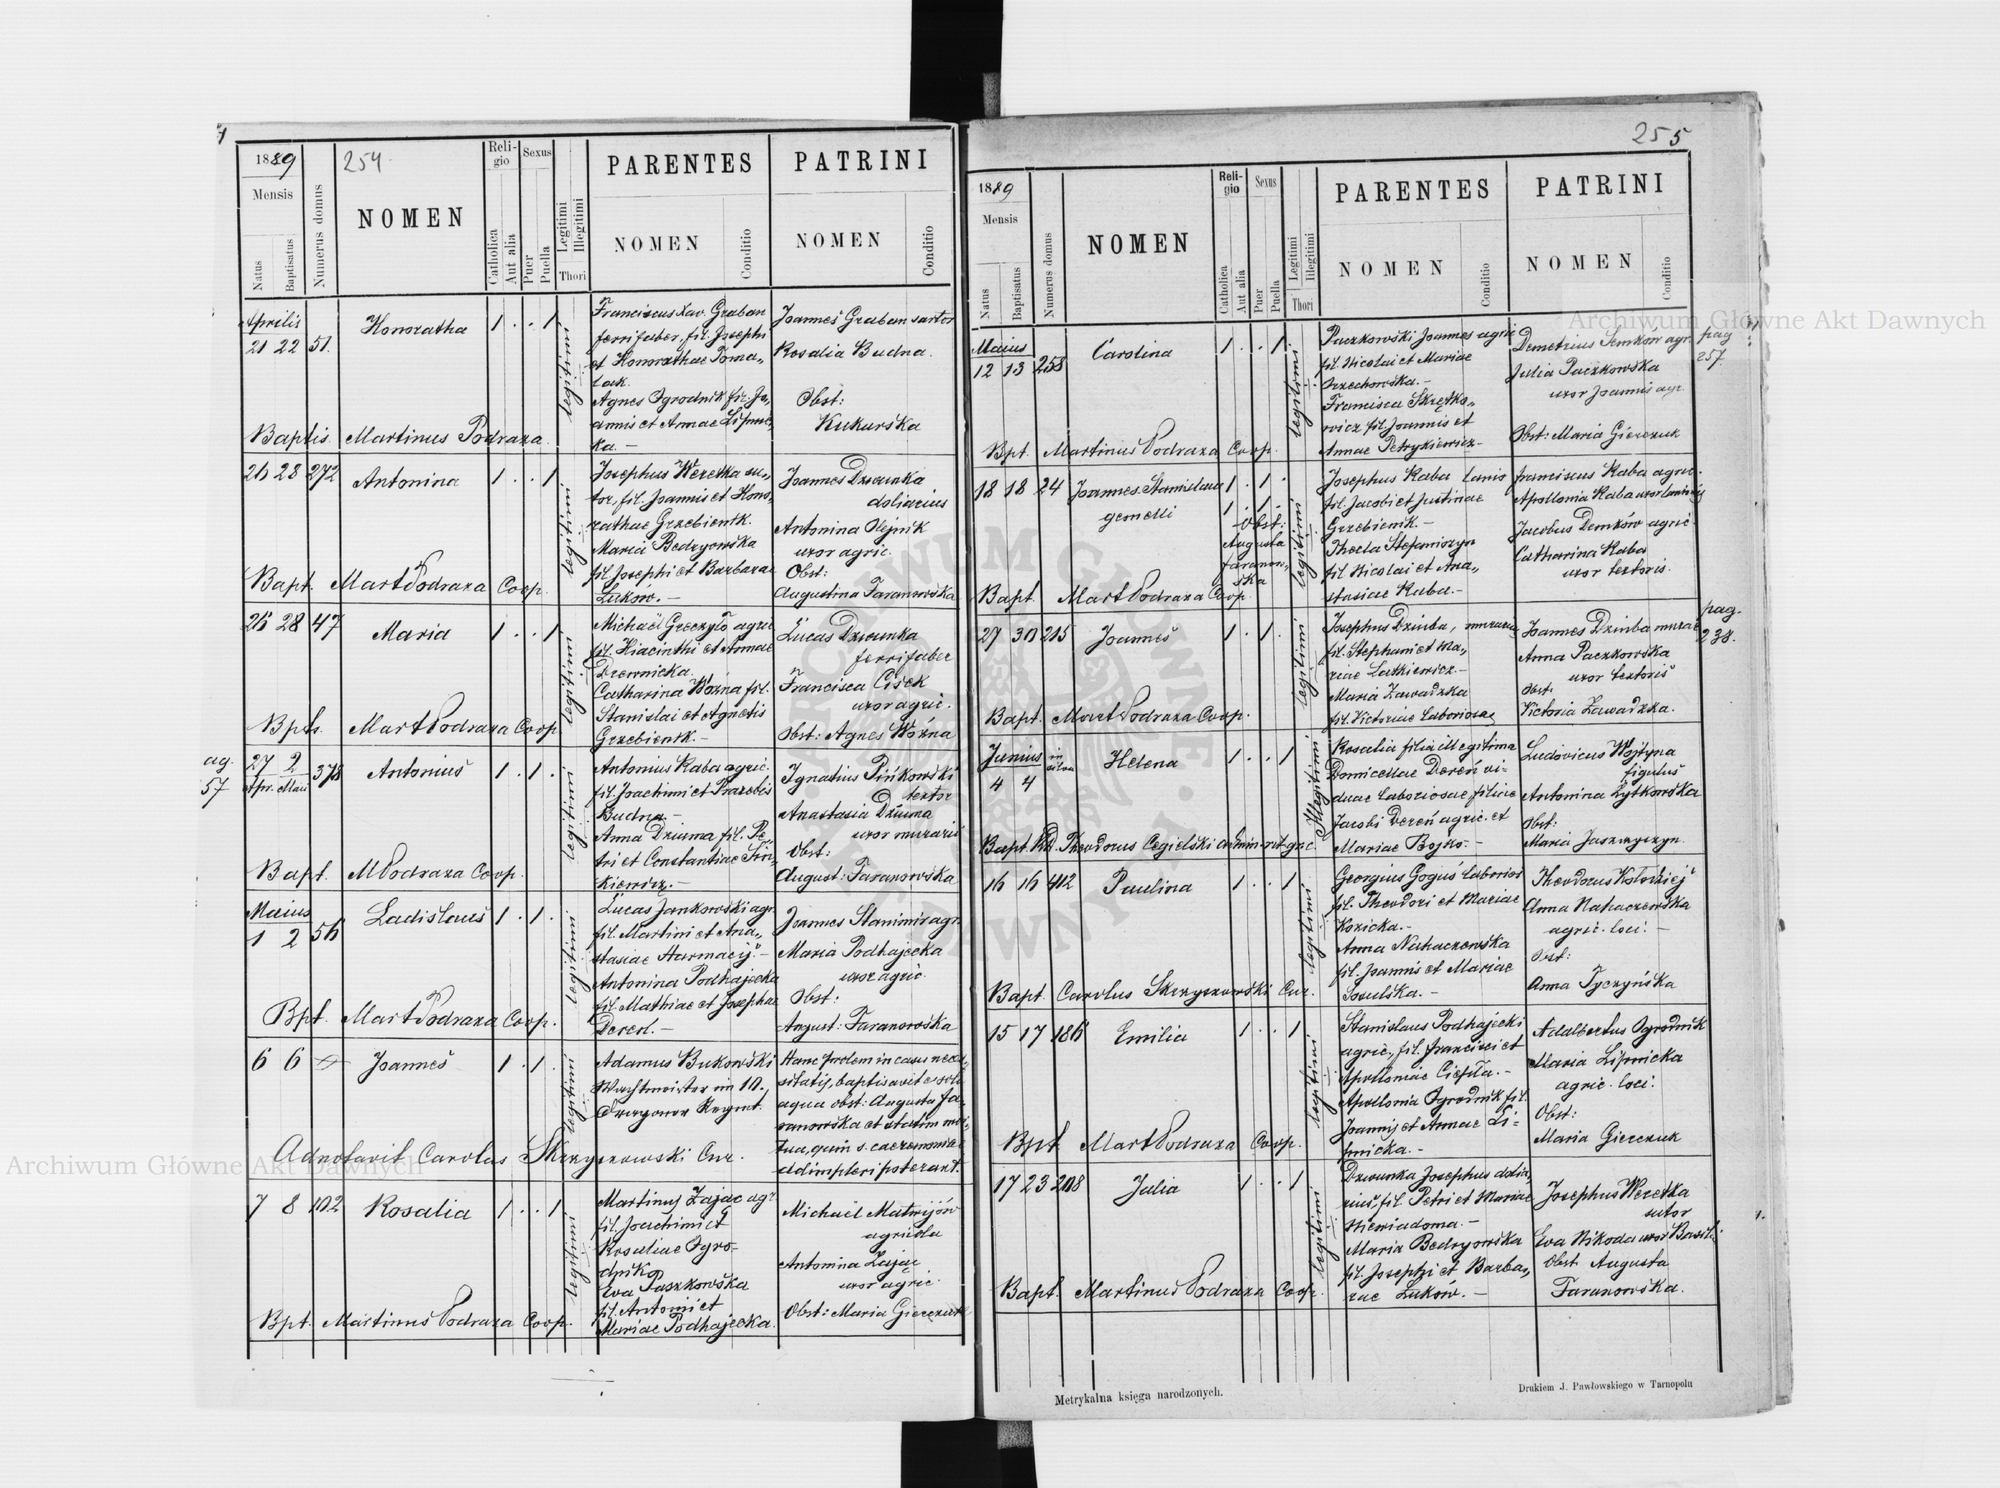 1889
254
Mensis
Natus
Baptisatus
Numerus domus
NOMEN
Reli-
gio
Catholica
Aut alia
Sexus
Puer
Puella
Legitimi
Illegitimi
Thori
PARENTES
NOMEN
Conditio
PATRINI
NOMEN
Conditio
Aprilis
21 22 51.
Honoratha
1 . . 1
legitimi
Franciscus Xav. Graban
ferrifaber, fil. Josephi
et Honorathae Toma„
lak.
Agnes Ogrodnik fil. Jo„
annis et Annae Lipnic„
ka. —
Joannes Graban sartor
Rosalia Budna.
Obst:
Kukurska
Baptis. Martinus Podraza
26 28 272
Antonina
1 . . 1
legitimi
Josephus Weretka su„
tor, fil. Joannis et Hono„
rathae Grzebienik.
Maria Bedryowska
fil. Josephi et Barbarae
Lukow. —
Joannes Dziunka
doliarius
Antonina Olejnik
uxor agric.
Obst:
Augustina Taranowska
Bapt. Mart Podraza Coop.
26 28 47
Maria
1 . . 1
legitimi
Michaël Greczyło agric
fil. Hiacinthi et Annae
Drewnicka.
Catharina Woźna fil.
Stanislai et Agnetis
Grzebienik. —
Lucas Dziunka
ferrifaber
Francisca Cisek
uxor agric.
Obst: Agnes Woźna
Bpts. Mart Podraza Coop
ag.
57
27 2 378
Apr. Maii
Antonius
1 . 1 .
legitimi
Antonius Kaba agric.
fil. Joachimi et Praxedis
Budna. —
Anna Dziuma fil. Pe„
tri et Constantiae Sin„
kiewicz. —
Ignatius Pińkowski
textor
Anastasia Dziuma
uxor murarii
Obst:
August: Taranowska
Bapt. M Podraza Coop.
Maius
1 2 56
Ladislaus
1 . 1 .
legitimi
Lucas Jankowski agr.
fil. Martini et Ana„
stasiae Harmacij. —
Antonina Podhajecka
fil. Mathiae et Josephae
Dereń. —
Joannes Stanimir agr.
Maria Podhajecka
uxor agric.
Obst:
August: Taranowska
Bpt. Mart Podraza Coop.
6 6
Joannes
1 . 1 .
legitimi
Adamus Bukowski
Wachtmeister im 10.
Dragoner Regmt.
Hanc prolem in casu nece„
sitatis, baptisavit
aqua obst: Augusta Ta„
ranowska et statim mor„
tua, quin s. caeremoniae
adimpleri poterant.
Adnotavit Carolus Skrzyszowski Cur.
7 8 102
Rosalia
1 . . 1
legitimi
Martinus Zając agr.
fil. Joachimi et
Rosaliae Ogro-
dnik.
Eva Paszkowska
fil. Antonii et
Mariae Podhajecka.
Michaël Matwijów
agricola
Antonina Zając
uxor agric.
Obst: Maria Gierczuk
Bpt. Martinus Podraza Coop.
255
1889
Mensis
Natus
Baptisatus
Numerus domus
NOMEN
Reli-
gio
Catholica
Aut alia
Sexus
Puer
Puella
Legitimi
Illegitimi
Thori
PARENTES
NOMEN
Conditio
PATRINI
NOMEN
Conditio
Maius
12 13 258
Carolina
1 . . 1
legitimi
Paczkowski Joannes agric
fil. Nicolai et Mariae
Orzechowska. —
Francisca Skrętko„
wicz fil. Joannis et
Annae Petrykiewicz —
Demetrius Semków agr.
Julia Paczkowska
uxor Joannis agr.
Obst: Maria Gierczuk
pag
257.
Bpt. Martinus Podraza Coop.
18 18 24
Joannes. Stanislaus
gemelli
1 . 1 .
1 . 1 .
Obst:
Augusta
Taranow„
ska
legitimi
Josephus Kaba lanio
fil. Jacobi et Justinae
Grzebienik. —
Thecla Stefaniszyn
fil Nicolai et Ana„
stasiae Kuba. —
Franciscus Kaba agric.
Apollonia Kaba uxor lanionis
Jacobus Demków agric.
Catharina Kaba
uxor textoris.
Bapt. Mart Podraza Coop
27 30 215
Joannes
1 . 1 .
legitimi
Josephus Dziuba, murarius
fil. Stephani et Ma„
riae Latkiewicz. —
Maria Zawadzka
fil. Victoriae laboriosae
Joannes Dziuba murar
Anna Paczkowska
uxor textoris
Obst:
Victoria Zawadzka.
pag.
238.
Bapt. Mart Podraza Coop.
Junius
4 4
Helena
1 . . 1
Illegitimi
Rosalia filia illegitima
Domicellae Dereń vi„
duae laboriosae filiae
Jacobi Dereń agric. et
Mariae Bojko. —
Ludovicus Wojtyna
figulus
Antonina Żytkowska
Obst:
Maria Jaszczyszyn
Bapt. RD. Theodorus Cegielski admin. rit. grc.
16 16 412
Paulina
1 . . 1
legitimi
Georgius Goguś laborios
fil. Theodori et Mariae
Kozicka. —
Anna Nahaczewska
fil. Joannis et Mariae
Sosulska. —
Theodorus Kołodziej
Anna Nahaczewska
agric. loci. —
Obst:
Anna Tyczyńska
Bapt. Carolus Skrzyszowski Cur.
15 17 186
Emilia
1 . . 1
legitimi
Stanislaus Podhajecki
agric, fil. Francisci et
Apolloniae Ciepła. —
Apollonia Ogrodnik fil.
Joannis et Annae Li-
pnicka. —
Adalbertus Ogrodnik
Maria Lipnicka
agric. loci.
Obst:
Maria Gierczuk
Bpt. Mart Podraza Coop.
17 23 208
Julia
1 . . 1
legitimi
Dziunka Josephus dolia„
rius, fil. Petri et Mariae
Niewiadoma. —
Maria Bedryowska
fil. Josephi et Barba„
rae Luków. —
Josephus Weretka
sutor
Eva Nikoda uxor Basilii
Obst Augusta
Taranowska.
Bapt. Martinus Podraza Coop.
Metrykalna księga narodzonych.
Drukiem J. Pawłowskiego w Tarnopolu
Archiwum Główne Akt Dawnych
Archiwum Główne Akt Dawnych
ARCHIWUM GŁÓWNE AKT DAWNYCH